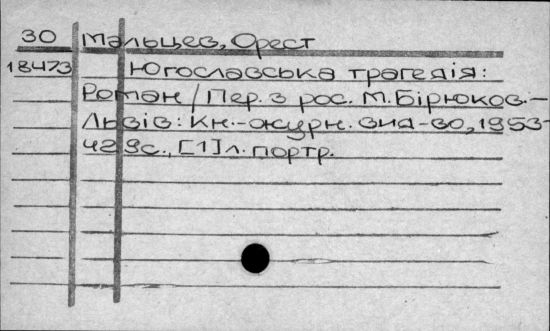 30 Мальцев, Орест
18473 Югославська трагедія:
Роман / Пер. з рос. М. Бірюков.-
Львів: Кн.-журн. вид-во, 1953-
429с., [1] л. портр.